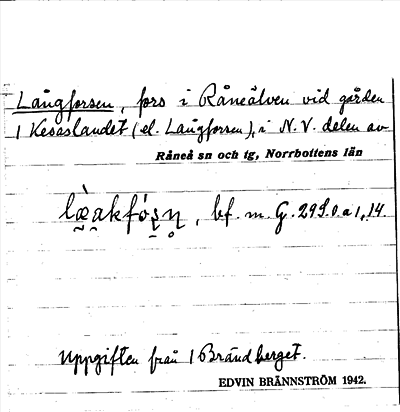 Långforsen, fors i Råneälven vid gården
1 Kesaslandet (el. Långforsen), i N.V. delen av
Råneå sn och tg, Norrbottens län
bf. m. G. 29 S.0.a 1, 14.
Uppgiften från 1 Brändberget.
EDVIN BRÄNNSTRÖM 1942.